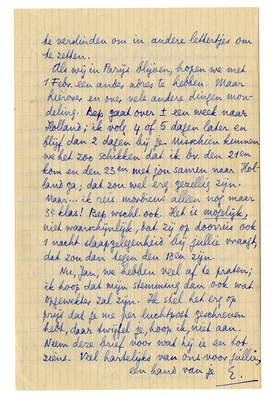 te verslinden om in andere lettertjes om
te zetten.
Als wij in Parijs blijven, hopen we met
1 Febr. een ander adres te hebben. Maar
hierover en over vele andere dingen mon-
deling. Bep gaat over ± een week naar
Holland; ik volg 4 of 5 dagen later en
blijf dan 2 dagen bij je. Misschien kunnen
we het zoo schikken dat ik bv. den 21en
kom en den 23en met jou samen naar Hol-
land ga; dat zou wel erg gezellig zijn.
Maar... ik reis 
alleen nog maar
3e klas! Bep wschl. ook. Het is mogelijk,
niet waarschijnlijk, dat zij op doorreis ook
1 nacht slaapgelegenheid bij jullie vraagt,
dat zou dan tegen den 18en zijn.
Nu, Jan, we hebben veel af te praten;
ik hoop dat mijn stemming dan ook wat
opgewekter zal zijn. Ik stel het erg op
prijs dat je me per luchtpost geschreven
hebt, daar twijfel je, hoop ik, niet aan.
Neem deze brief voor wat hij is en tot
ziens. Veel hartelijks van ons voor jullie,
een hand van je E.